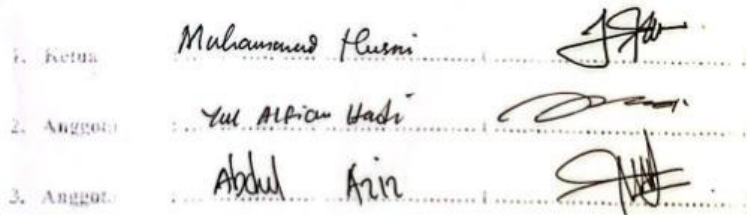 1. Ketua Muhammad Husni
2. Anggota : Yul Alfian Hadi :
3. Anggota : Abdul Aziz